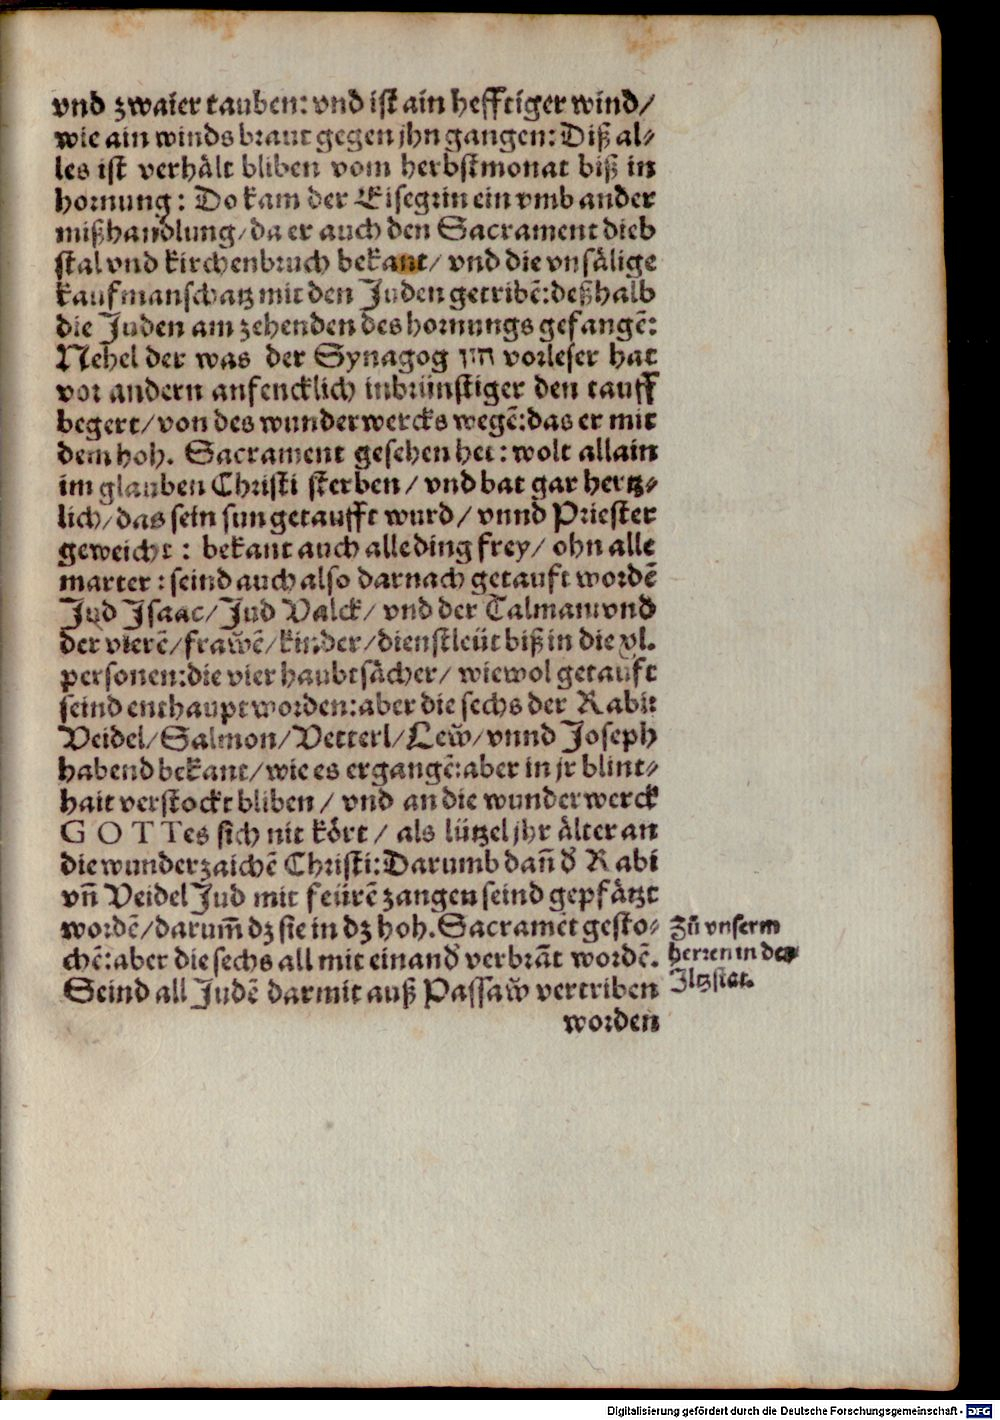 vnd zwaier tauben: vnd ist ain hefftiger wind/
wie ain winds braut gegen jhn gangen: Diß al⸗
les ist verhålt bliben vom herbstmonat biß in
hornung: Do kam der Eisegrin ein vmb ander
mißhandlung/ da er auch den Sacrament dieb
stal vnd kirchenbruch bekant/ vnd die vnsålige
kaufmanschatz mit den Juden getribē: deßhalb
die Juden am zehenden des hornungs gefangē:
Nehel der was der Synagog vorleser hat
vor andern anfencklich inbrünstiger den tauff
begert/ von des wunderwercks wegē: das er mit
dem hoh. Sacrament gesehen het: wolt allain
im glauben Christi sterben/ vnd bat gar hertz⸗
lich/ das sein sun getaufft wurd/ vnnd Priester
geweicht: bekant auch alle ding frey/ ohn alle
marter: seind auch also darnach getauft wordē
Jud Jsaac/ Jud Valck/ vnd der Talman vnd
der vierē/ frawē/ kinder/ dienstleüt biß in die xl.
personen: die vier haubtsächer/ wiewol getauft
seind enthaupt worden: aber die sechs der Rabi:
Veidel/ Salmon/ Vetterl/ Lew/ vnnd Joseph
habend bekant/ wie es ergangē: aber in jr blint⸗
hait verstockt bliben/ vnd an die wunderwerck
GOTTes sich nit kört/ als lützel jhr ålter an
die wunderzaichē Christi: Darumb dañ d' Rabi
vñ Veidel Jud mit feürē zangen seind gepfåtzt
wordē/ darum̄ dz sie in dz hoh. Sacramēt gesto⸗
chē: aber die sechs all mit einand' verbrāt wordē.
Seind all Judē darmit auß Passaw̆ vertriben
worden
Zů vnserm
herren in der
Jltzstat.
Digitalisierung gefördert durch die Deutsche Forschungsgemeinschaft - DFG